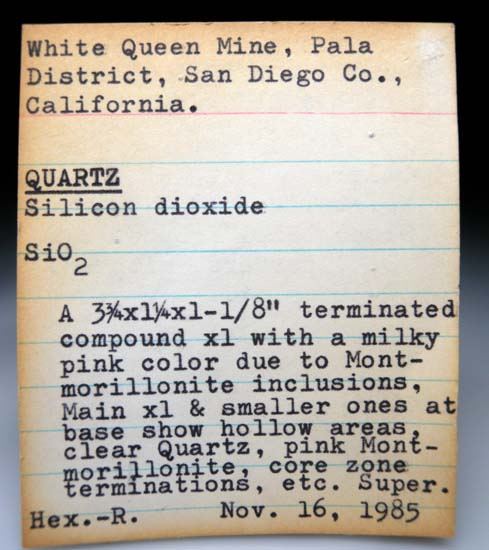 White Queen Mine, Pala
District, San Diego Co.,
California.
QUARTZ
Silicon dioxide
SiO2
A 3¾x1¼x1-1/8" terminated
compound xl with a milky
pink color due to Mont-
morillonite inclusions,
Main xl & smaller ones at
base show hollow areas,
clear Quartz, pink Mont-
morillonite, core zone
terminations, etc. Super.
Hex.-R. Nov. 16, 1985